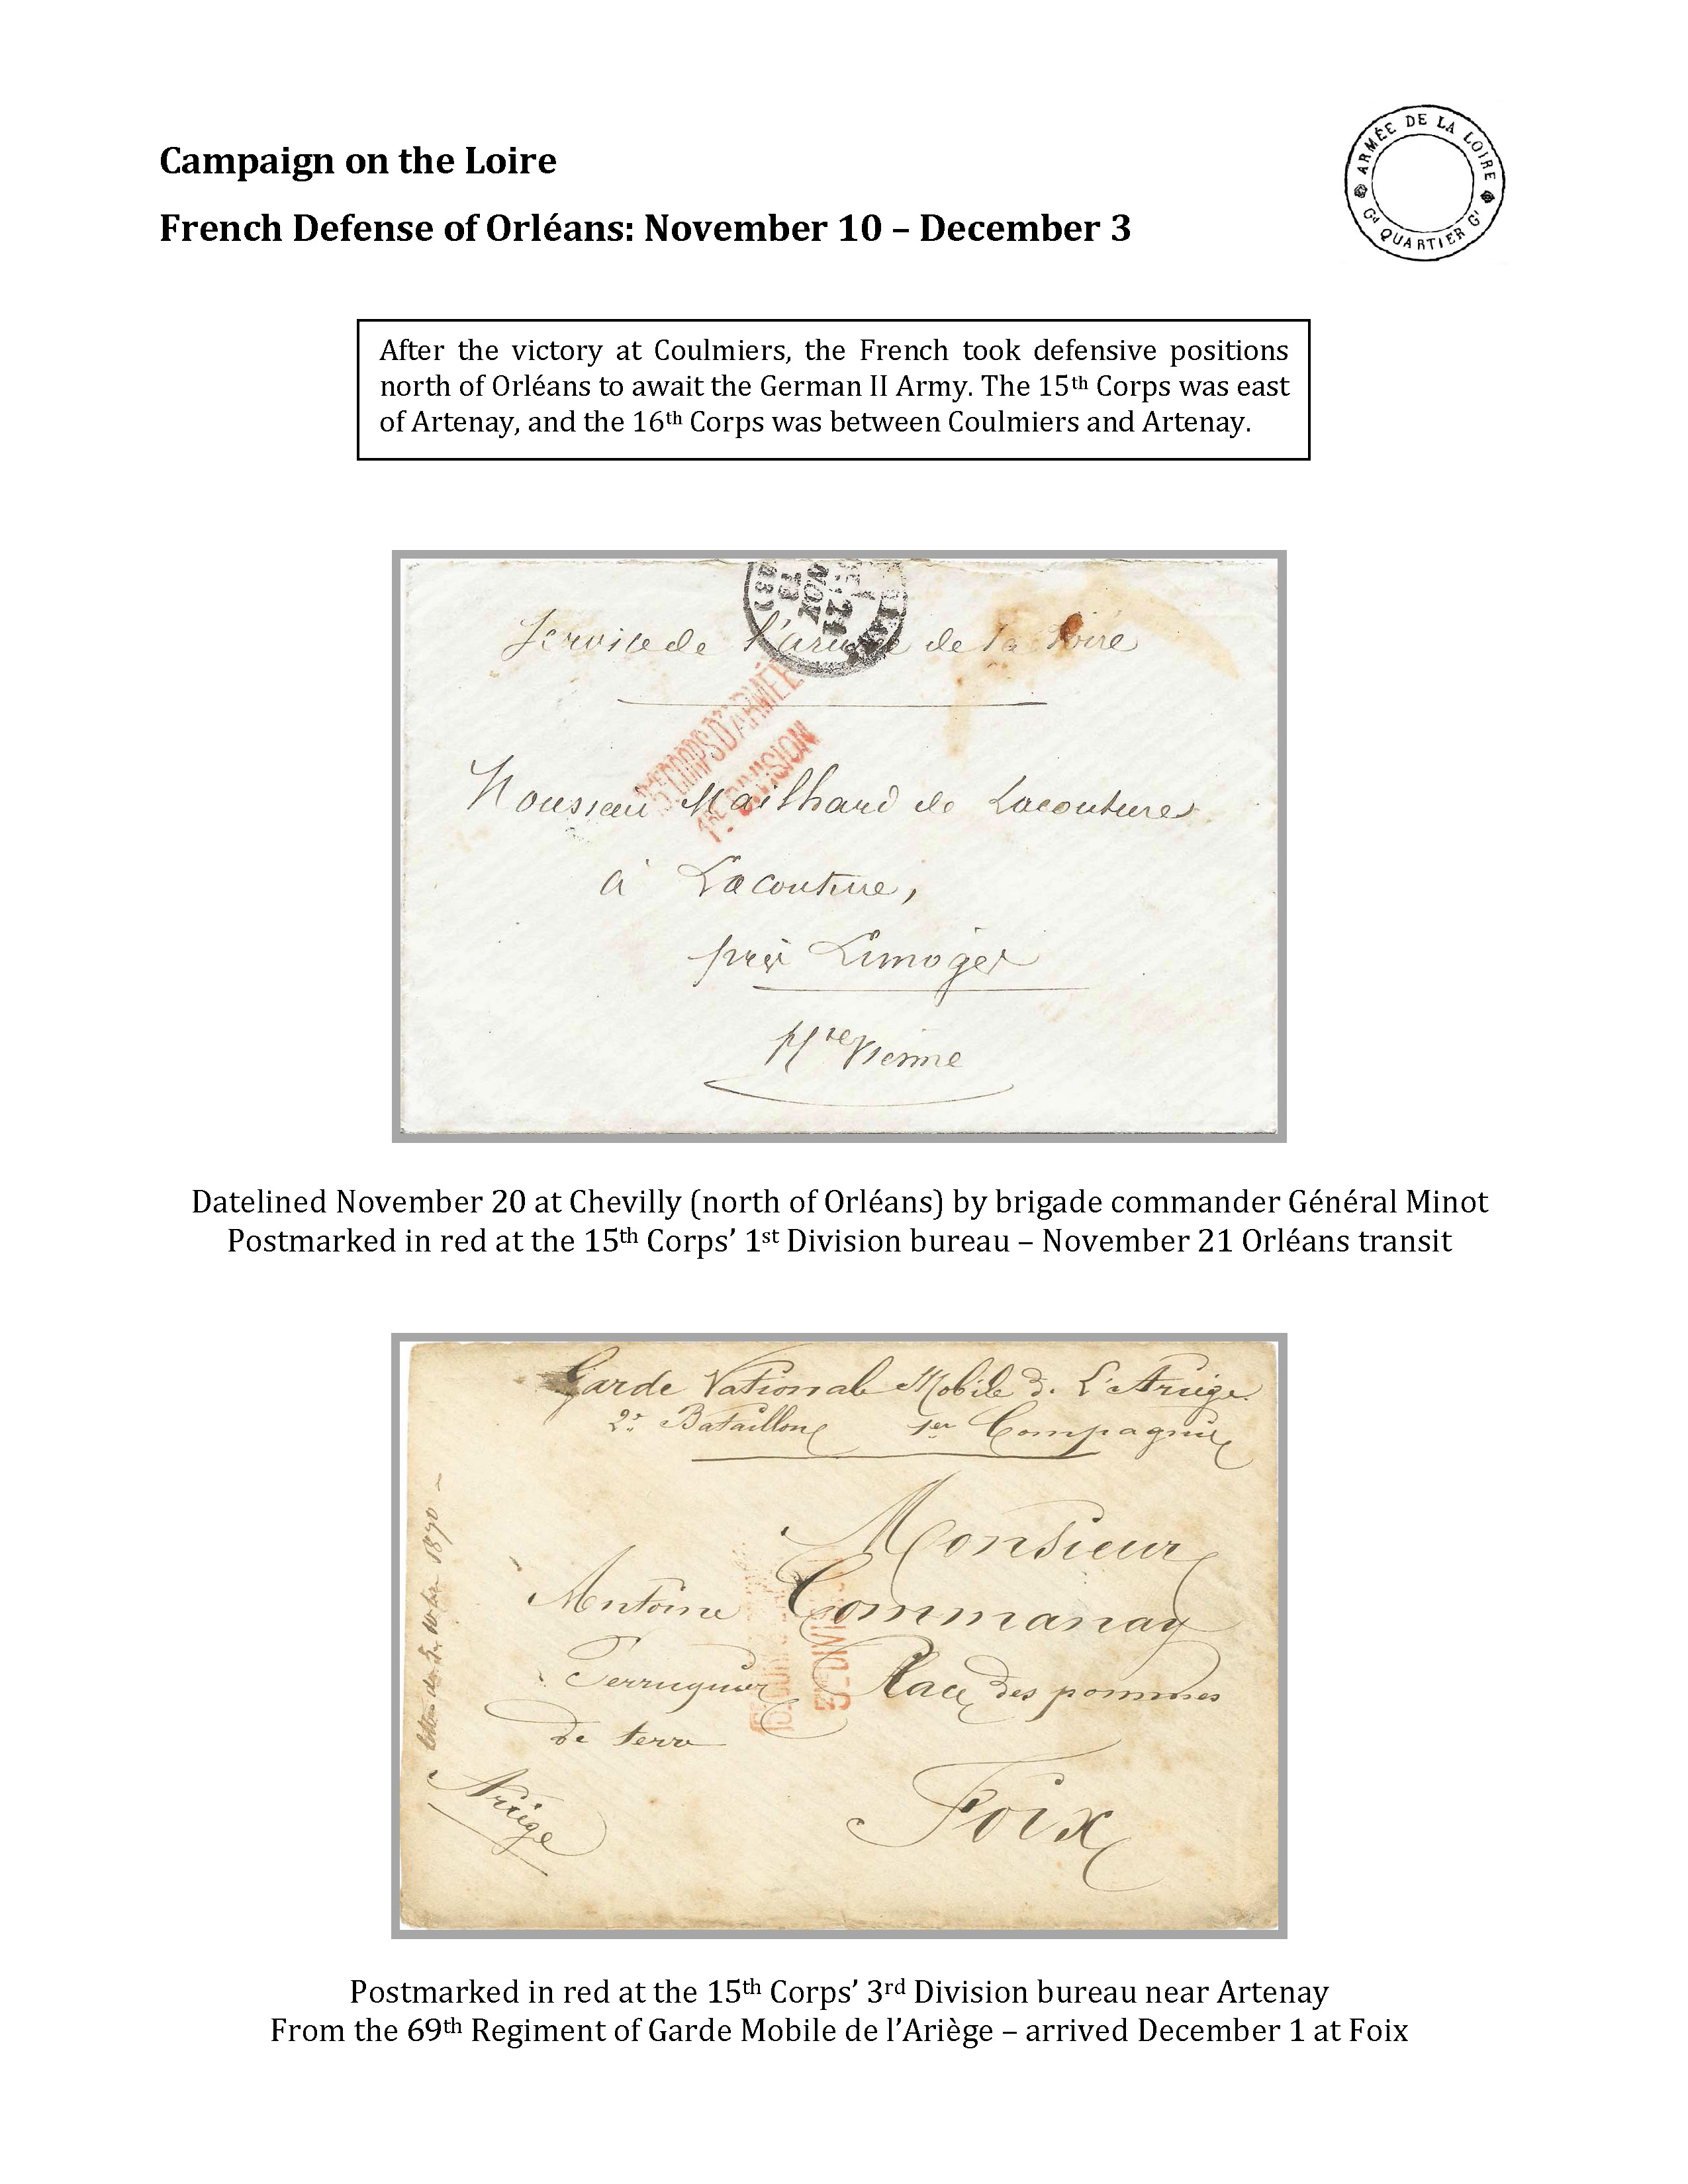 Campaign on the Loire
French Defense of Orléans: November 10 – December 3
ARMÉE DE LA LOIRE
Gd QUARTIER Gl
After the victory at Coulmiers, the French took defensive positions
north of Orléans to await the German II Army. The 15th Corps was east
of Artenay, and the 16th Corps was between Coulmiers and Artenay.
Service de l'armée de la Loire
15e CORPS D'ARMÉE
1re DIVISION
Monsieur Mailhard de Lacouture
à Lacouture,
près Limoges
Hte Vienne
Datelined November 20 at Chevilly (north of Orléans) by brigade commander Général Minot
Postmarked in red at the 15th Corps' 1st Division bureau – November 21 Orléans transit
Garde Nationale Mobile de L'Ariège
2e Bataillon 1er Compagnie
Monsieur
Antoine Commanay
Place des pommes
de terre
Foix
Ariège
1870
3me DIVISION
Postmarked in red at the 15th Corps' 3rd Division bureau near Artenay
From the 69th Regiment of Garde Mobile de l'Ariège – arrived December 1 at Foix